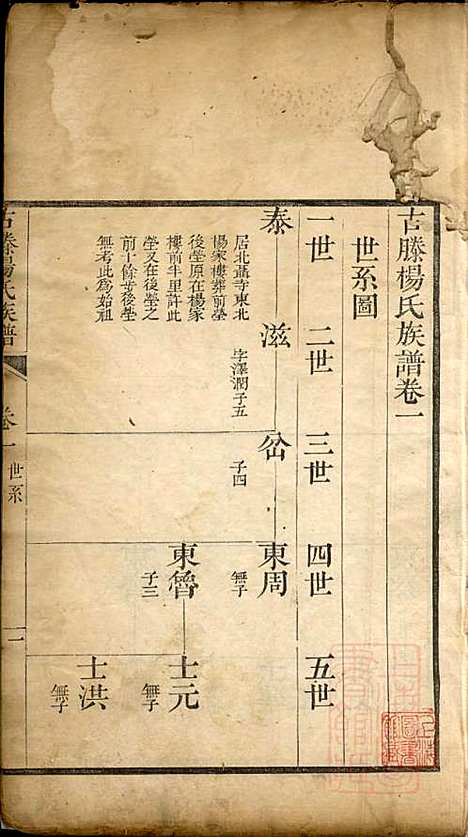 古滕楊氏族譜卷一
世系圖
一世 二世 三世 四世 五世
泰 滋 嵒 東周
居北蕭寺東北
楊家樓葬前塋
後塋原在楊家
樓前半里許此
塋又在後塋之
前十餘步後塋
無考此為始祖
字澤潤子五
子四
無子
東魯
子三
士元
無子
士洪
無子
古滕楊氏族譜 卷一 世系 一